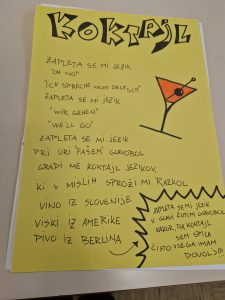 KOKTAJL
ZAPLETA SE MI JEZIK
"OH NO!"
"ICH SPRECHE NICHT DEUTSCH"
ZAPLETA SE MI JEZIK
"WIR GEHEN"
"WE'LL GO"
ZAPLETA SE MI JEZIK
PRI URI FAŠEM GLAVOBOL
GRADI ME KOKTAJL JEZIKOV,
KI V MISLIH SPROŽI MI RAZKOL
VINO IZ SLOVENIJE
VISKI IZ AMERIKE
PIVO IZ BERLINA
ZAPLETA SE MI JEZIK
V GLAVI ČUTIM GLAVOBOL
KAKOR, DA KOKTAJL
SEM SPILA
ČISTO VSEGA IMAM
DOVOLJ!!!